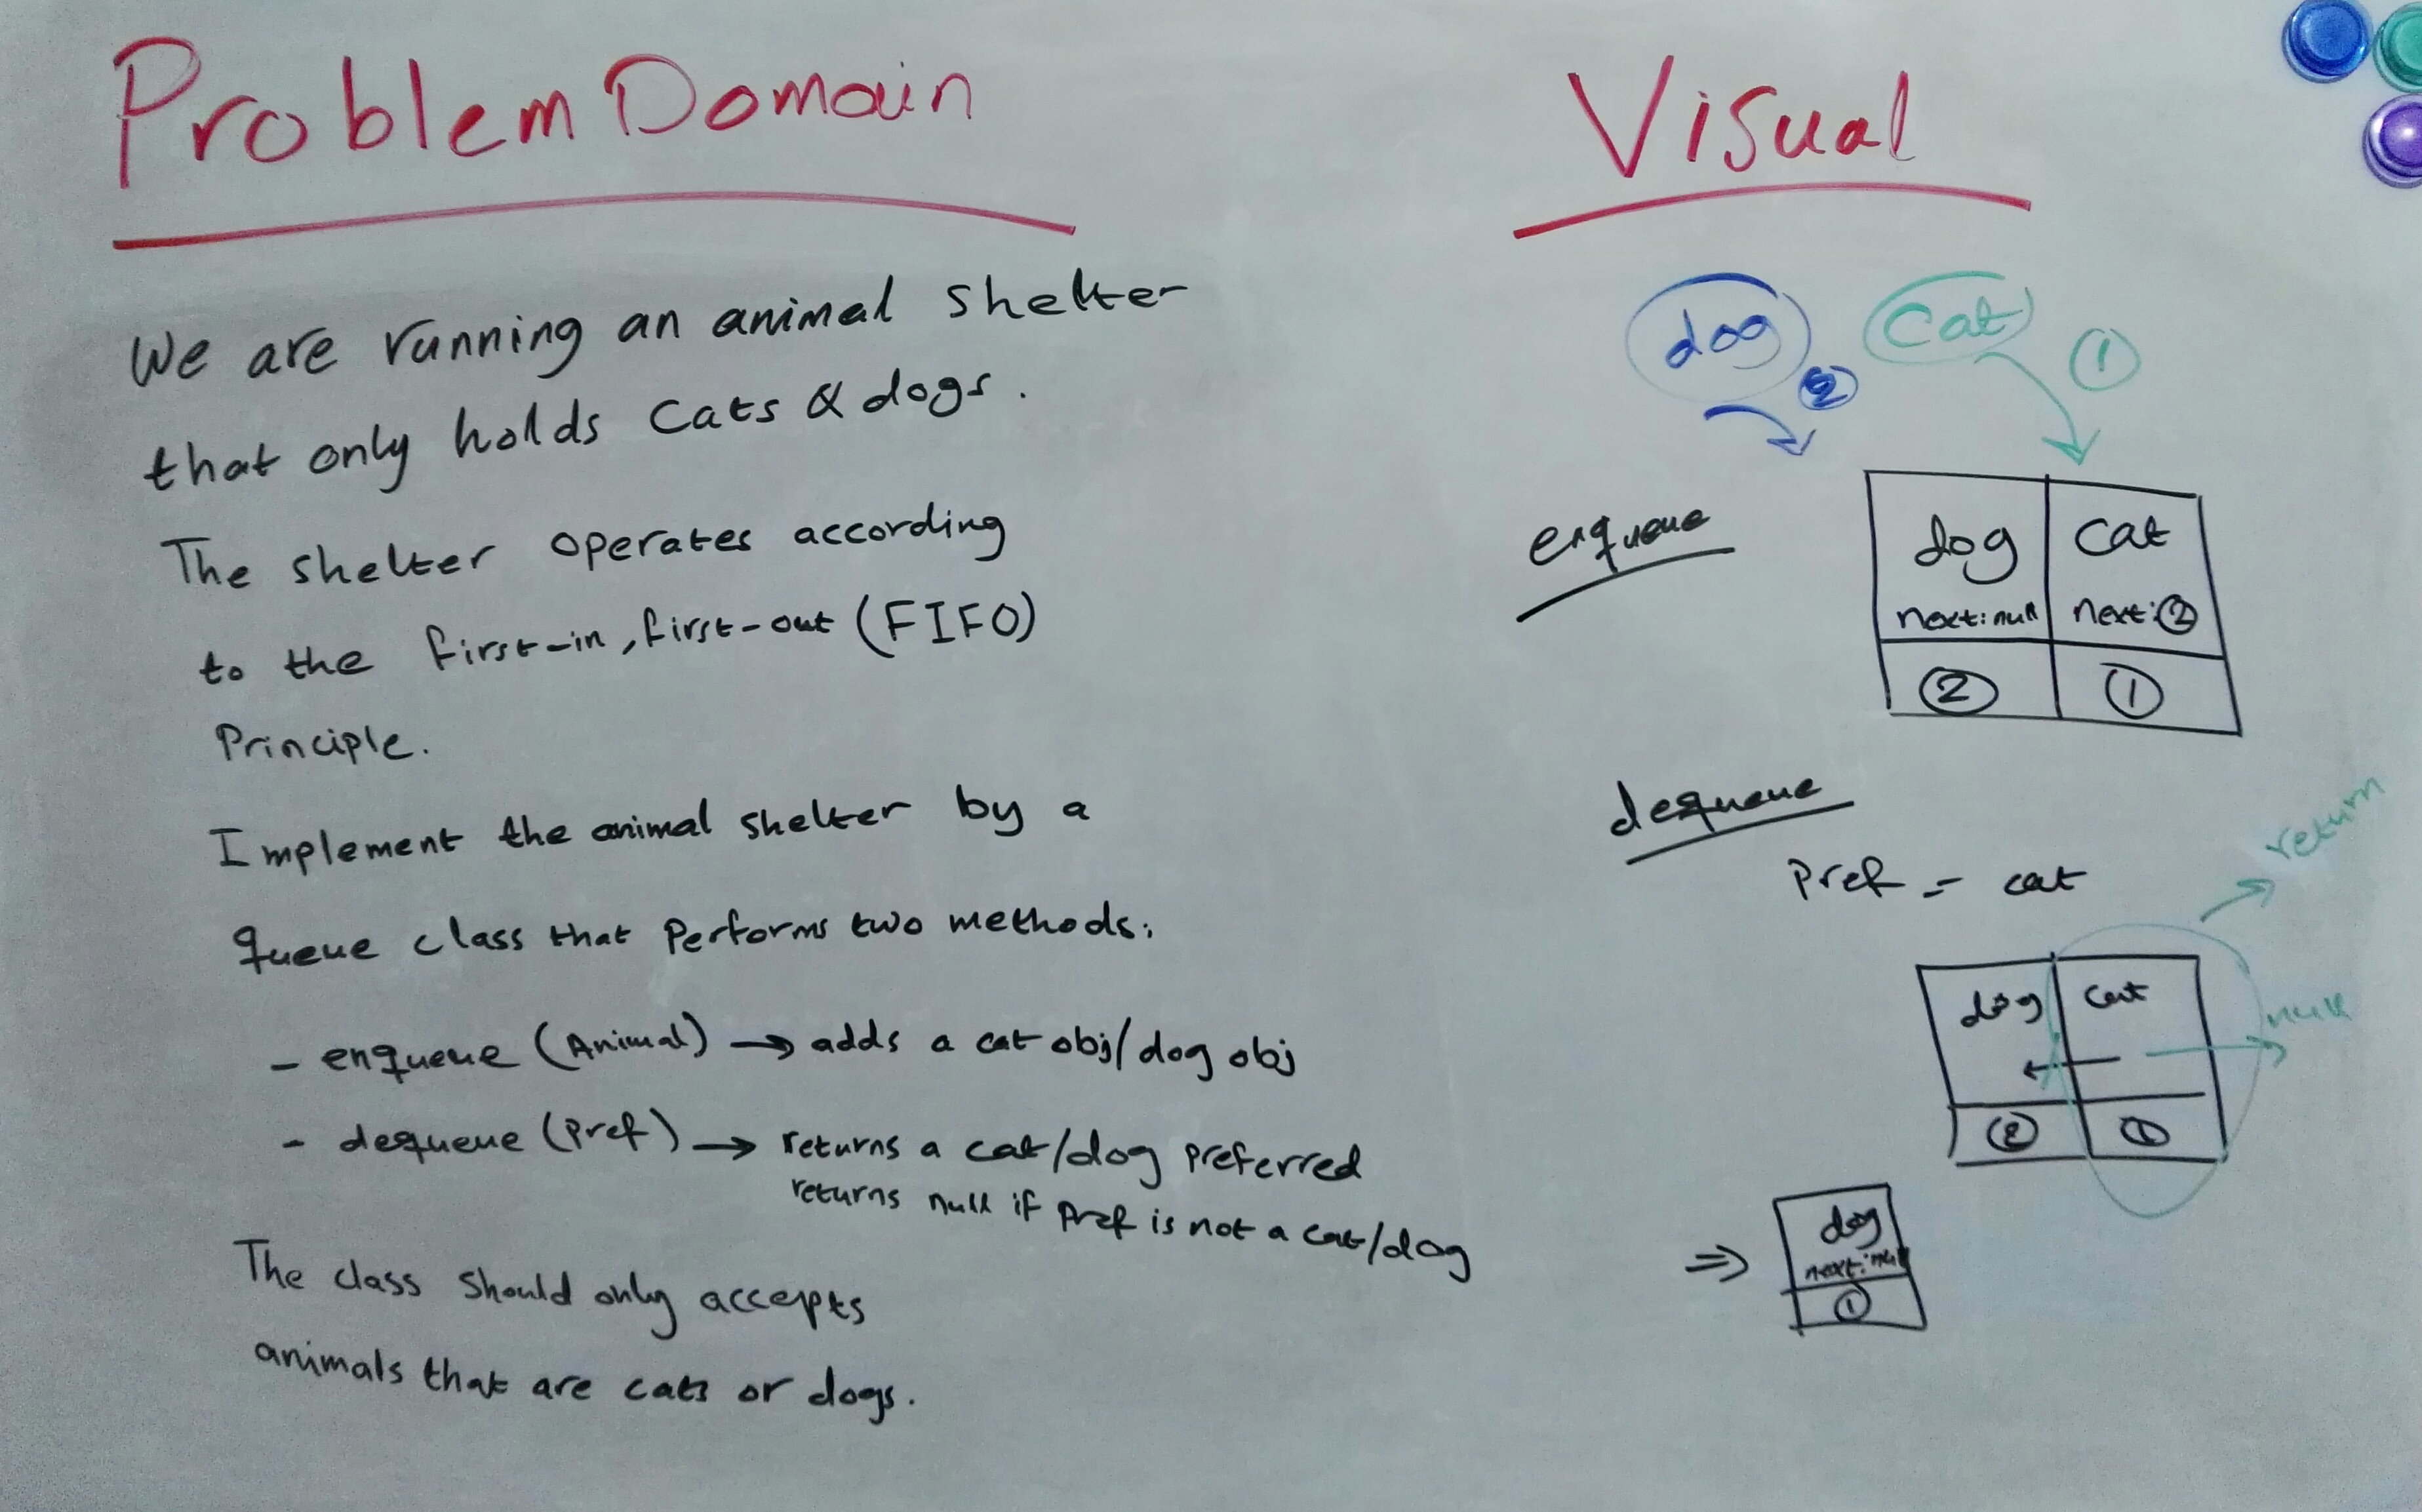 Problem Domain
We are running an animal shelter
that only holds Cats & dogs.
The shelter operates according
to the first-in, first-out (FIFO)
Principle.
Implement the animal shelter by a
queue class that Performs two methods:
- enqueue (Animal) → adds a cat obj/dog obj
- dequeue (Pref) → returns a cat/dog preferred
returns null if Pref is not a cat/dog
The class should only accepts
animals that are cats or dogs.
Visual
dog Cat
② ①
enqueue
dog cat
next: null next: ②
② ①
dequeue
Pref = cat
return
dog cat
null
② ①
⇒ dog
next: null
①